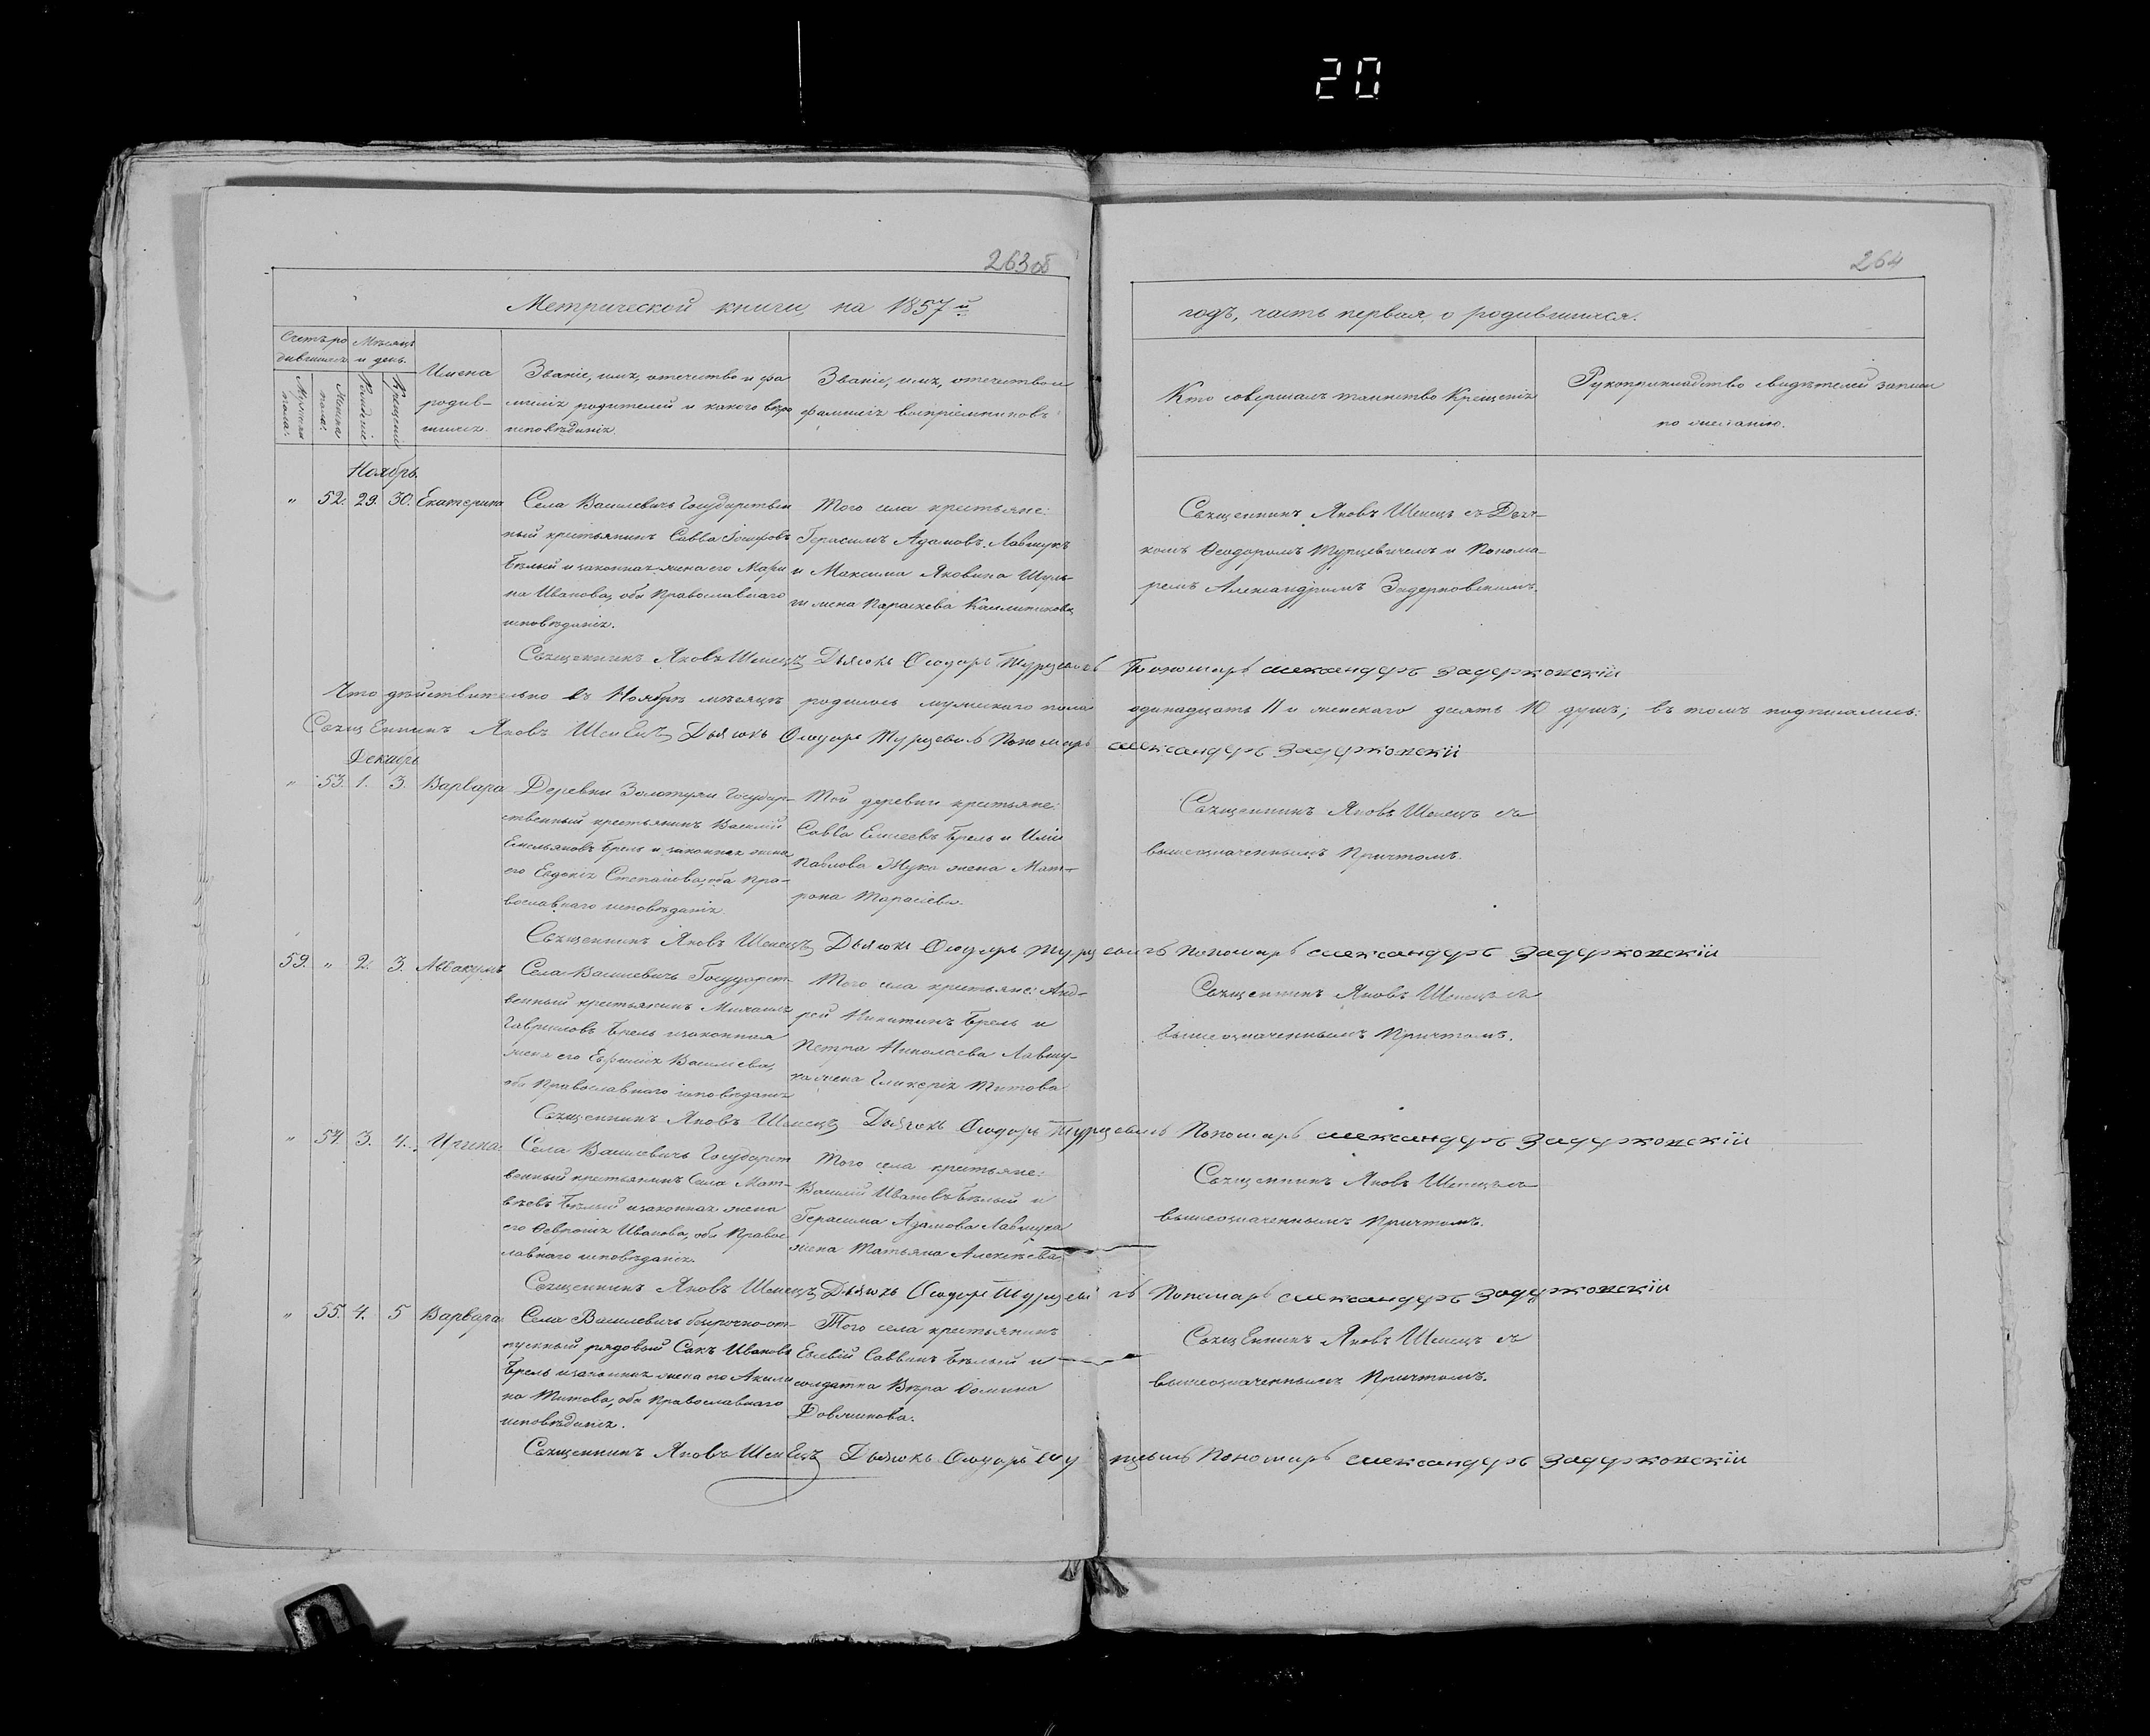 20
263об
264
Метрической книги, на 1857й
годъ, часть первая, о родившихся.
Счетъ ро
дившихся
Мѣсяцъ
и день.
Мужеска
пола.
Женска
пола.
Рожденіе
Крещеніе
Имена
родив-
шихся.
Званіе, имя, отечество и фа
милія родителей и какого вѣро
исповѣданія.
Званіе, имя, отечество и
фамилія воспріемниковъ
Кто совершалъ таинство Крещенія
Рукоприкладство свидѣтелей записи
по желанію.
Ноябрь.
" 52. 29. 30. Екатерина
Села Василевичъ Государствен
ный крестьянинъ Савва Іосифовъ
Бѣлый и законная жена его Мари
на Иванова, оба Православнаго
исповѣданія.
Того села крестьяне:
Герасимъ Адамовъ Лавшукъ
и Максима Яковина Шуль-
ги жена Параскева Каллиникова
Священникъ Яковъ Шенецъ съ Дьяч-
комъ Ѳеодоромъ Турцевичемъ и Понома-
ремъ Александромъ Задерковскимъ.
Священникъ Яковъ Шенецъ Дьячокъ Ѳеодоръ Турцевичъ Пономарь Александръ Задерковскій
Что дѣйствительно въ Ноябрѣ мѣсяцѣ родилось мужескаго пола одинадцать 11 и женскаго десять 10 душъ; въ томъ подписались:
Священникъ Яковъ Шенецъ Дьячокъ Ѳеодоръ Турцевичъ Пономарь Александръ Задерковскій
Декабрь
" 53. 1. 3. Варвара
Деревни Золотухи Государ-
ственный крестьянинъ Василій
Емельяновъ Брель и законная жена
его Евдокія Степанова, оба Пра-
вославнаго исповѣданія.
Той деревни крестьяне:
Савва Елисеевъ Брель и Иліи
Павлова Жука жена Мат-
рона Тарасіева.
Священникъ Яковъ Шенецъ съ
вышеозначеннымъ Причтомъ.
Священникъ Яковъ Шенецъ Дьячокъ Ѳеодоръ Турцевичъ Пономарь Александръ Задерковскій
59. " 2. 3. Аввакумъ
Села Василевичъ Государст-
венный крестьянинъ Михаилъ
Гавриловъ Брель и законная
жена его Евфимія Васильева,
оба Православнаго исповѣданія
Того села крестьяне: Анд-
рей Никитинъ Брель и
Петра Николаева Лавшу-
ка жена Гликерія Титова
Священникъ Яковъ Шенецъ съ
вышеозначеннымъ Причтомъ.
Священникъ Яковъ Шенецъ Дьячокъ Ѳеодоръ Турцевичъ Пономарь Александръ Задерковскій
" 54. 3. 4. Ирина.
Села Василевичъ Государст
венный крестьянинъ Сила Мат-
вѣевъ Бѣлый и законная жена
его Февронія Иванова, оба Правос-
лавнаго исповѣданія.
Того села крестьяне:
Василій Ивановъ Бѣлый и
Герасима Адамова Лавшука
жена Татьяна Алексѣева.
Священникъ Яковъ Шенецъ съ
вышеозначеннымъ Причтомъ.
Священникъ Яковъ Шенецъ Дьячокъ Ѳеодоръ Турцевичъ Пономарь Александръ Задерковскій
" 55. 4. 5 Варвара
Села Василевичъ безсрочно-от-
пускный рядовый Сакъ Ивановъ
Брель и законная жена его Акили
на Титова, оба Православнаго
исповѣданія.
Того села крестьянинъ
Евсевій Саввинъ Бѣлый и
солдатка Вѣра Ѳомина
Довжинова.
Священникъ Яковъ Шенецъ съ
вышеозначеннымъ Причтомъ.
Священникъ Яковъ Шенецъ Дьячокъ Ѳеодоръ Турцевичъ Пономарь Александръ Задерковскій